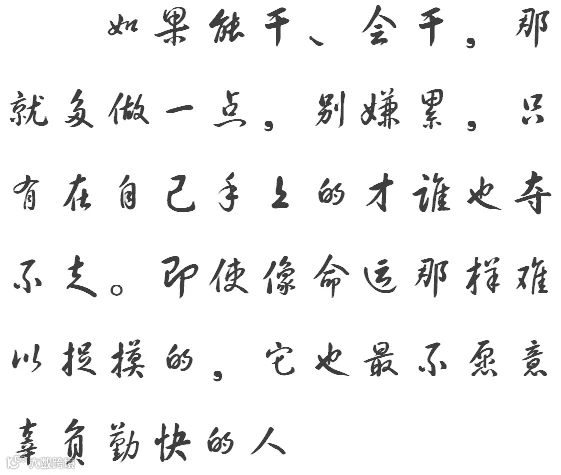 如果能干、会干，那
就多做一点，别嫌累，只
有在自己手上的才谁也夺
不走。即使像命运那样难
以捉摸的，它也最不愿意
辜负勤快的人